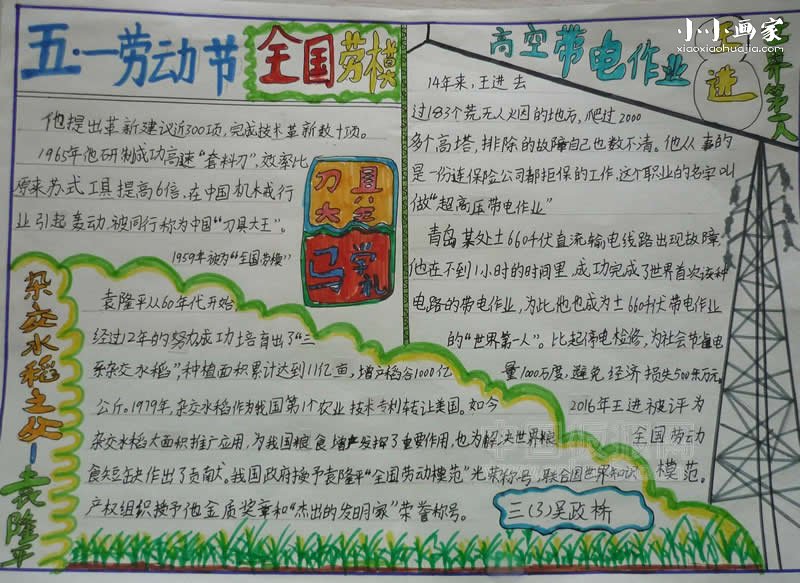 五·一劳动节
全国劳模
他提出革新建议近300项,完成技术革新数十项。
1965年他研制成功高速“套料刀”,效率比
原来苏式工具提高6倍,在中国机木戒行
业引起轰动,被同行称为中国“刀具大王”。
1959年被为“全国劳模”
刀具
大王
马学礼
杂交水稻之父—袁隆平
袁隆平从60年代开始,
经过12年的努力成功培育出了“三
系杂交水稻”,种植面积累计达到11亿亩,增产稻谷1000亿
公斤。1979年,杂交水稻作为我国第1个农业技术专利转让美国。如今
杂交水稻大面积推广应用,为我国粮食增产发挥了重要作用,也为解决世界粮
食短缺作出了贡献。我国政府授予袁隆平“全国劳动模范”光荣称号,联合国世界知识
产权组织授予他金质奖章和“杰出的发明家”荣誉称号。
高空带电作业
世界第一人
王进
14年来,王进去
过183个荒无人火因的地方,爬过2000
多个高塔,排除的故障自己也数不清。他从事的
是一份连保险公司都拒保的工作,这个职业的名字叫
做“超高压带电作业”
青岛某处±660千伏直流输电线路出现故障,
他在不到1小时的时间里,成功完成了世界首次该种
电路的带电作业,为此,他也成为±660千伏带电作业
的“世界第一人”。比起停电检修,为社会节省电
量1000万度,避免经济损失500余万元。
2016年王进被评为
全国劳动
模范。
三(3)吴政桥
小小画家
xiaoxiaohuajia.com